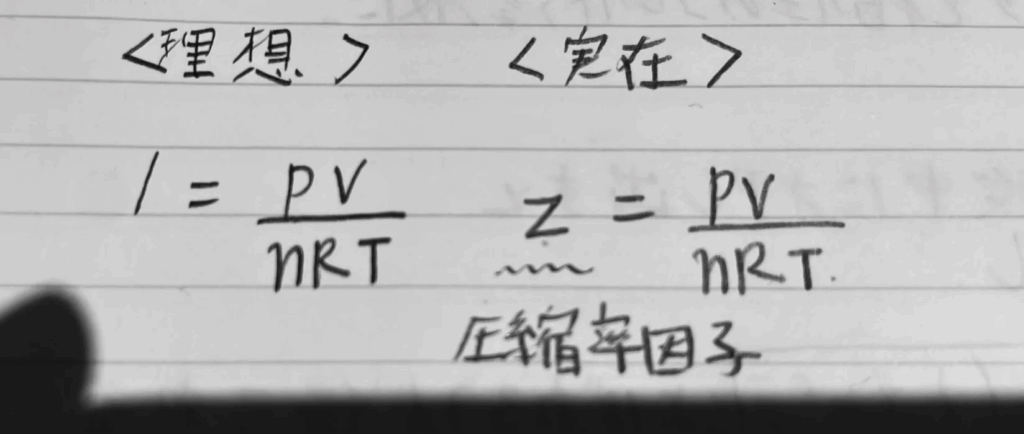 <理想> <実在>
1 = PV/nRT Z = PV/nRT.
圧縮率因子